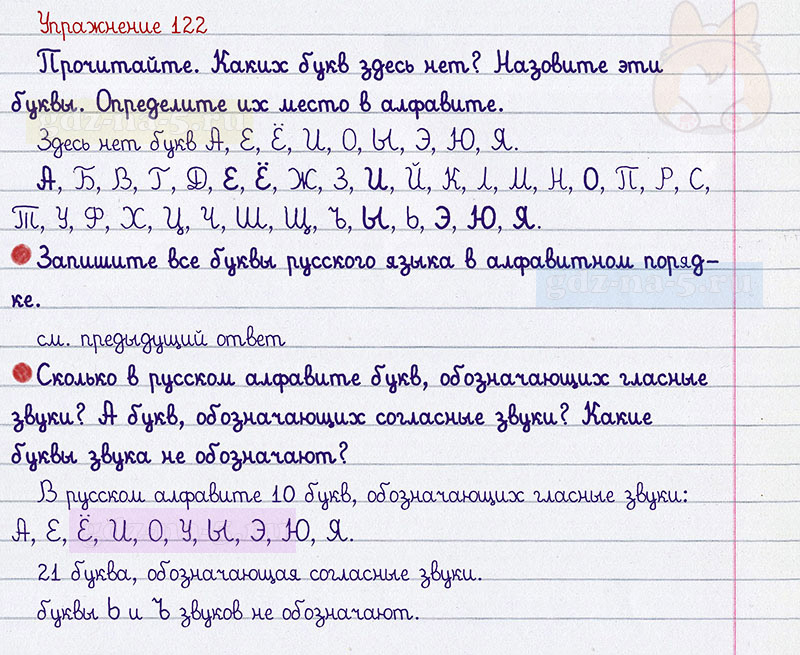 Упражнение 122
Прочитайте. Каких букв здесь нет? Назовите эти
буквы. Определите их место в алфавите.
gdz-na-5.ru
Здесь нет букв А, Е, Ё, И, О, Ы, Э, Ю, Я.
А, Б, В, Г, Д, Е, Ё, Ж, З, И, Й, К, Л, М, Н, О, П, Р, С,
Т, У, Ф, Х, Ц, Ч, Ш, Щ, Ъ, Ы, Ь, Э, Ю, Я.
Запишите все буквы русского языка в алфавитном поряд-
gdz-na-5.ru
ке.
см. предыдущий ответ
Сколько в русском алфавите букв, обозначающих гласные
звуки? А букв, обозначающих согласные звуки? Какие
буквы звука не обозначают?
В русском алфавите 10 букв, обозначающих гласные звуки:
А, Е, Ё, И, О, У, Ы, Э, Ю, Я.
21 буква, обозначающая согласные звуки.
буквы Ь и Ъ звуков не обозначают.